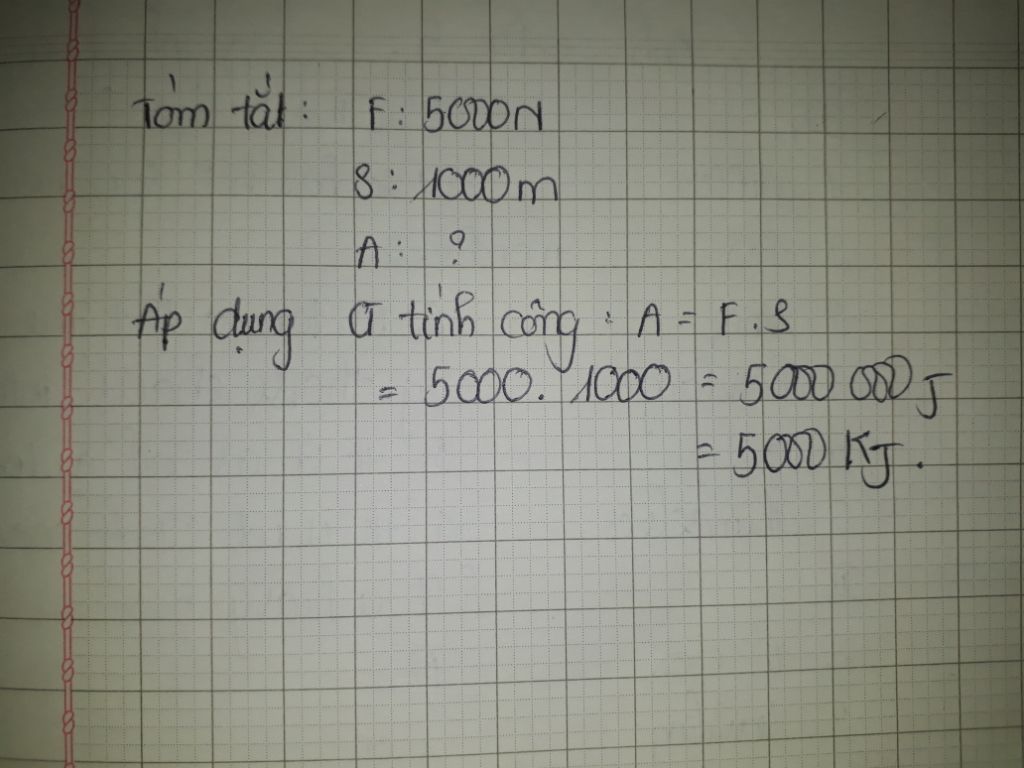 Tóm tắt: F: 5000N
S: 1000m
A: ?
Áp dụng CT tính công: A = F.S
= 5000. 1000 = 5000 000 J
= 5000 KJ.